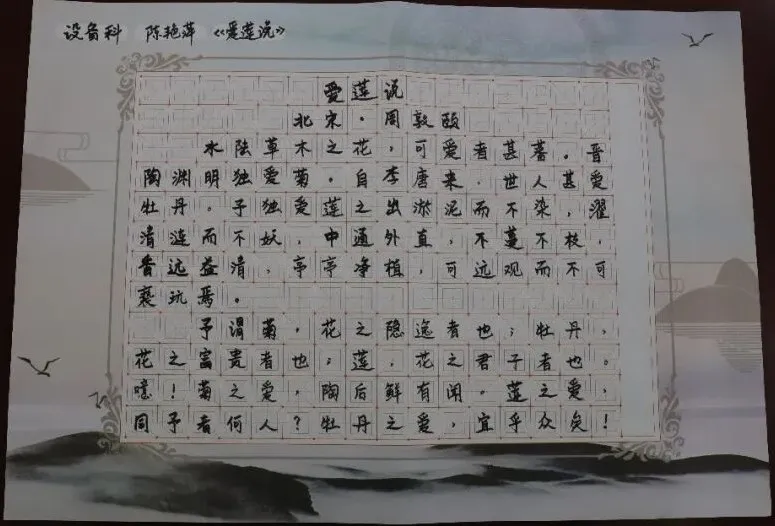 设备科 陈艳萍 《爱莲说》
爱莲说
北宋·周敦颐
水陆草木之花，可爱者甚蕃。晋
陶渊明独爱菊。自李唐来，世人甚爱
牡丹。予独爱莲之出淤泥而不染，濯
清涟而不妖，中通外直，不蔓不枝，
香远益清，亭亭净植，可远观而不可
亵玩焉。
予谓菊，花之隐逸者也；牡丹，
花之富贵者也；莲，花之君子者也。
噫！菊之爱，陶后鲜有闻。莲之爱，
同予者何人？牡丹之爱，宜乎众矣！